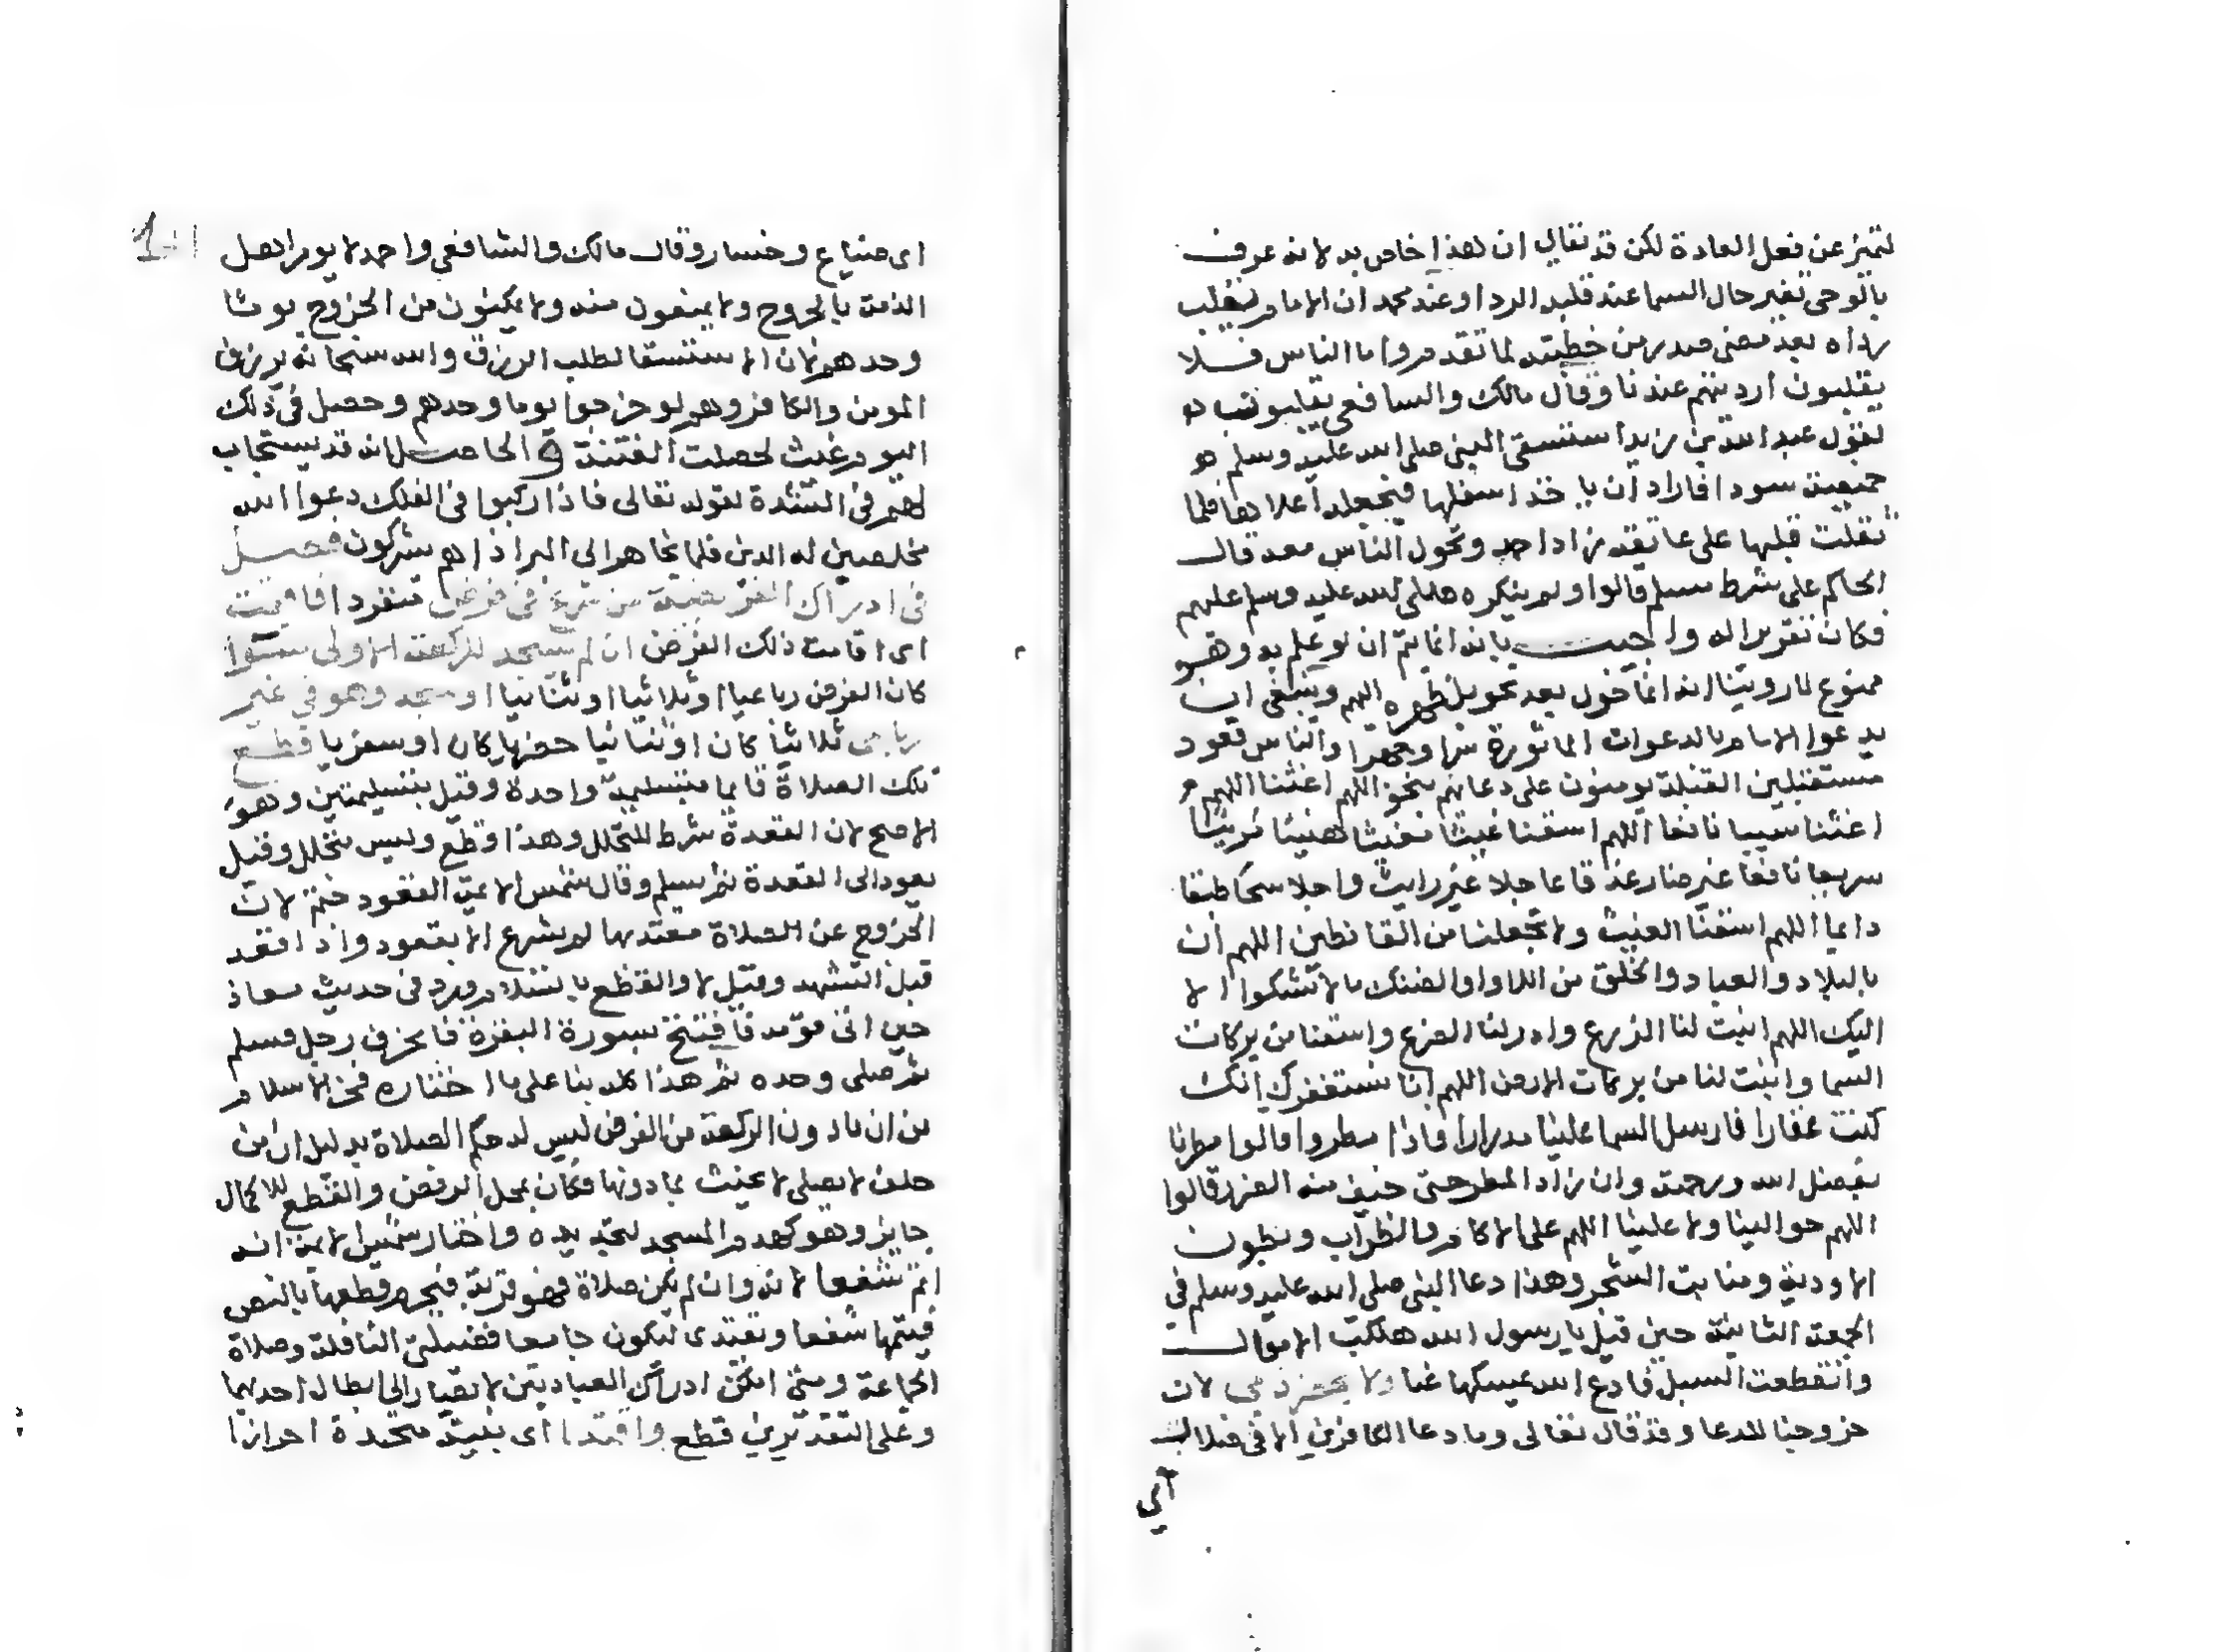 لتميز عن فعل العادة لكن قد يقال ان هذا خاص به لانه عرف
بالوحي تغير حال السما عند قلبه الردا وعند محمد ان الامام يقلب
رداه بعد مضي صدر من خطبته لما تقدم واما الناس فلا
يقلبون ارديتهم عندنا وقال مالك والشافعي يقلبون
لقول عبد الله بن زيد استسقى النبي صلى الله عليه وسلم
خميصة سودا فاراد ان ياخذ اسفلها فيجعله اعلاها فلما
ثقلت قلبها على عاتقه زاد احمد وتحول الناس معه قال
الحاكم على شرط مسلم قالوا ولم ينكره صلى الله عليه وسلم عليهم
فكان تقريرا له واجيب بانه انما يتم ان لو علم به وهو
ممنوع لما روينا انه انما حول بعد تحويل ظهره اليهم وينبغي ان
يدعوا الامام بالدعوات الماثورة سرا وجهرا والناس قعود
مستقبلين القبلة يومنون على دعائهم بنحو اللهم اغثنا اللهم
اغثنا سيبا نافعا اللهم اسقنا غيثا مغيثا هنيئا مريئا
سريعا نافعا غير ضار غدقا عاجلا غير رايث واجلا سحا طبقا
دايما اللهم اسقنا الغيث ولا تجعلنا من القانطين اللهم ان
بالبلاد والعباد والخلق من اللاوا والضنك ما لا تشكوا الا
اليك اللهم انبت لنا الزرع وادر لنا الضرع واسقنا من بركات
السما وانبت لنا من بركات الارض اللهم انا نستغفرك انك
كنت غفارا فارسل السما علينا مدرارا فاذا مطروا قالوا مطرنا
بفضل الله ورحمته وان زاد المطر حتى خيف منه الضرر قالوا
اللهم حوالينا ولا علينا اللهم على الاكام والظراب وبطون
الاودية ومنابت الشجر وهذا دعا النبي صلى الله عليه وسلم في
الجمعة الثانية حين قيل يا رسول الله هلكت الاموال
وانقطعت السبل فادع الله يمسكها عنا ولا يحضر ذمي لان
خروجنا للدعا وقد قال تعالى وما دعا الكافرين الا في ضلال
اي
اي ضياع وخسار وقال مالك والشافعي واحمد لا يومر اهل
الذمة بالخروج ولا يمنعون منه ولا يمكنون من الخروج يوما
وحدهم لان الاستسقا لطلب الرزق والله سبحانه يرزق
المومن والكافر وهم لو خرجوا يوما وحدهم وحصل في ذلك
اليوم غيث لحصلت الفتنة والحاصل انه قد يستجاب
لهم في الشدة لقوله تعالى فاذا ركبوا في الفلك دعوا الله
مخلصين له الدين فلما نجاهم الى البر اذا هم يشركون فصل
في ادراك الفريضة من شرع في فرض منفردا فاقيمت
اي اقامت ذلك الفرض ان لم يسجد للركعة الاولى سوا
كان الفرض رباعيا او ثلاثيا او ثنائيا او سجد وهو في غير
رباعي ثلاثيا كان او ثنائيا حضريا كان او سفريا قطع
تلك الصلاة قايما بتسليمة واحدة وقيل بتسليمتين وهو
الاصح لان القعدة شرط للتحلل وهذا وقطع وليس بتحلل وقيل
يعود الى القعدة ثم يسلم وقال شمس الايمة العقود حتم لان
الخروج عن الصلاة معتدبها لم يشرع الا بقعود واذا قعد
قبل التشهد وقيل لا والقطع بالسلام ورد في حديث معاذ
حين اتى قومه فافتتح بسورة البقرة فانحرف رجل فسلم
ثم صلى وحده ثم هذا كله بنا على ما اختاره فخر الاسلام
من ان ما دون الركعة من الفرض ليس له حكم الصلاة بدليل ان من
حلف لا يصلي لا يحنث بما دونها فكان بمحل الرفض والقطع للاكمال
جايز وهو كهدم المسجد لتجديده واختار شمس الايمة انه
يتم شفعا لانه وان لم يكن صلاة فهو قربة فيحرم قطعها بالنص
فيتمها شفعا ويقتدي ليكون جامعا فضيلتي النافلة وصلاة
الجماعة ومتى امكن ادراك العبادتين لا يصار الى ابطال احديهما
وعلى التقديرين قطع واقتدا اي بنية متجددة احرازا